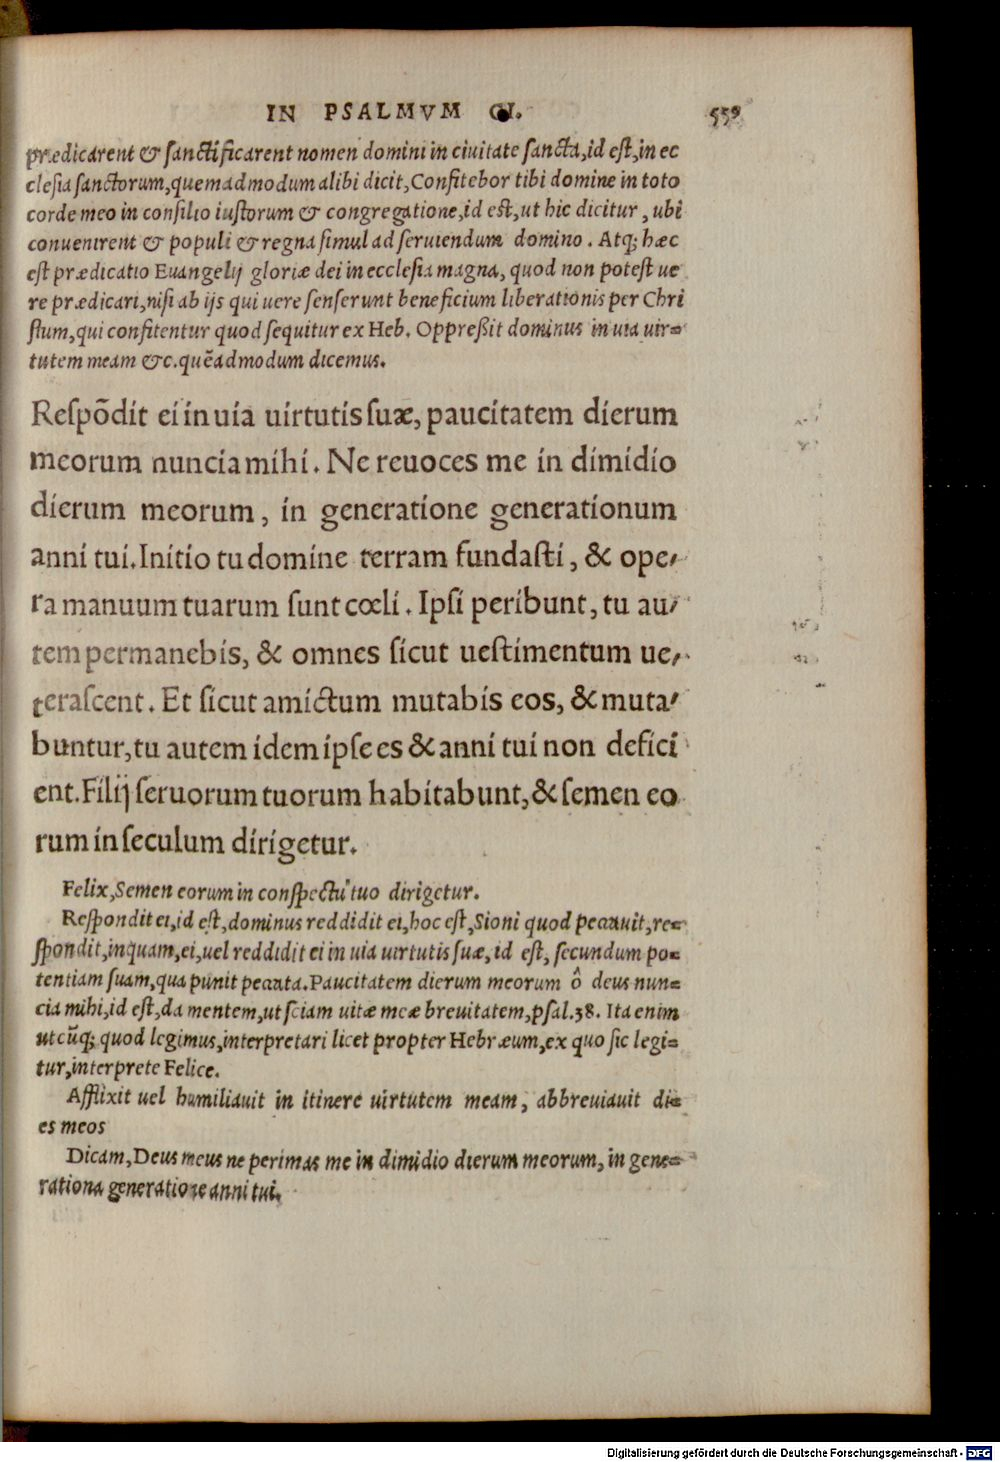 IN PSALMVM CI. 559
prædicarent & sanctificarent nomen domini in ciuitate sancta, id est, in ec
clesia sanctorum, quemadmodum alibi dicit, Confitebor tibi domine in toto
corde meo in consilio iustorum & congregatione, id est, ut hic dicitur, ubi
conuenirent & populi & regna simul ad seruiendum domino. Atq; hæc
est prædicatio Euangelij gloriæ dei in ecclesia magna, quod non potest ue
re prædicari, nisi ab ijs qui uere senserunt beneficium liberationis per Chri
stum, qui confitentur quod sequitur ex Heb. Oppreßit dominus in uia uir=
tutem meam &c. quẽadmodum dicemus.
Respõdit ei in uia uirtutis suæ, paucitatem dierum
meorum nuncia mihi. Ne reuoces me in dimidio
dierum meorum, in generatione generationum
anni tui. Initio tu domine terram fundasti, & ope-
ra manuum tuarum sunt cœli. Ipsi peribunt, tu au-
tem permanebis, & omnes sicut uestimentum ue-
terascent. Et sicut amictum mutabis eos, & muta-
buntur, tu autem idem ipse es & anni tui non defici
ent. Filij seruorum tuorum habitabunt, & semen eo
rum in seculum dirigetur.
Felix, Semen eorum in conspectu tuo dirigetur.
Respondit ei, id est, dominus reddidit ei, hoc est, Sioni quod peccauit, re=
spondit, inquam, ei, uel reddidit ei in uia uirtutis suæ, id est, secundum po=
tentiam suam, qua punit peccata. Paucitatem dierum meorum ô deus nun=
cia mihi, id est, da mentem, ut sciam uitæ meæ breuitatem, psal. 38. Ita enim
utcũq; quod legimus, interpretari licet propter Hebræum, ex quo sic legi=
tur, interprete Felice.
Afflixit uel humiliauit in itinere uirtutem meam, abbreuiauit di=
es meos
Dicam, Deus meus ne perimas me in dimidio dierum meorum, in gene=
rationa generatione anni tui.
Digitalisierung gefördert durch die Deutsche Forschungsgemeinschaft - DFG